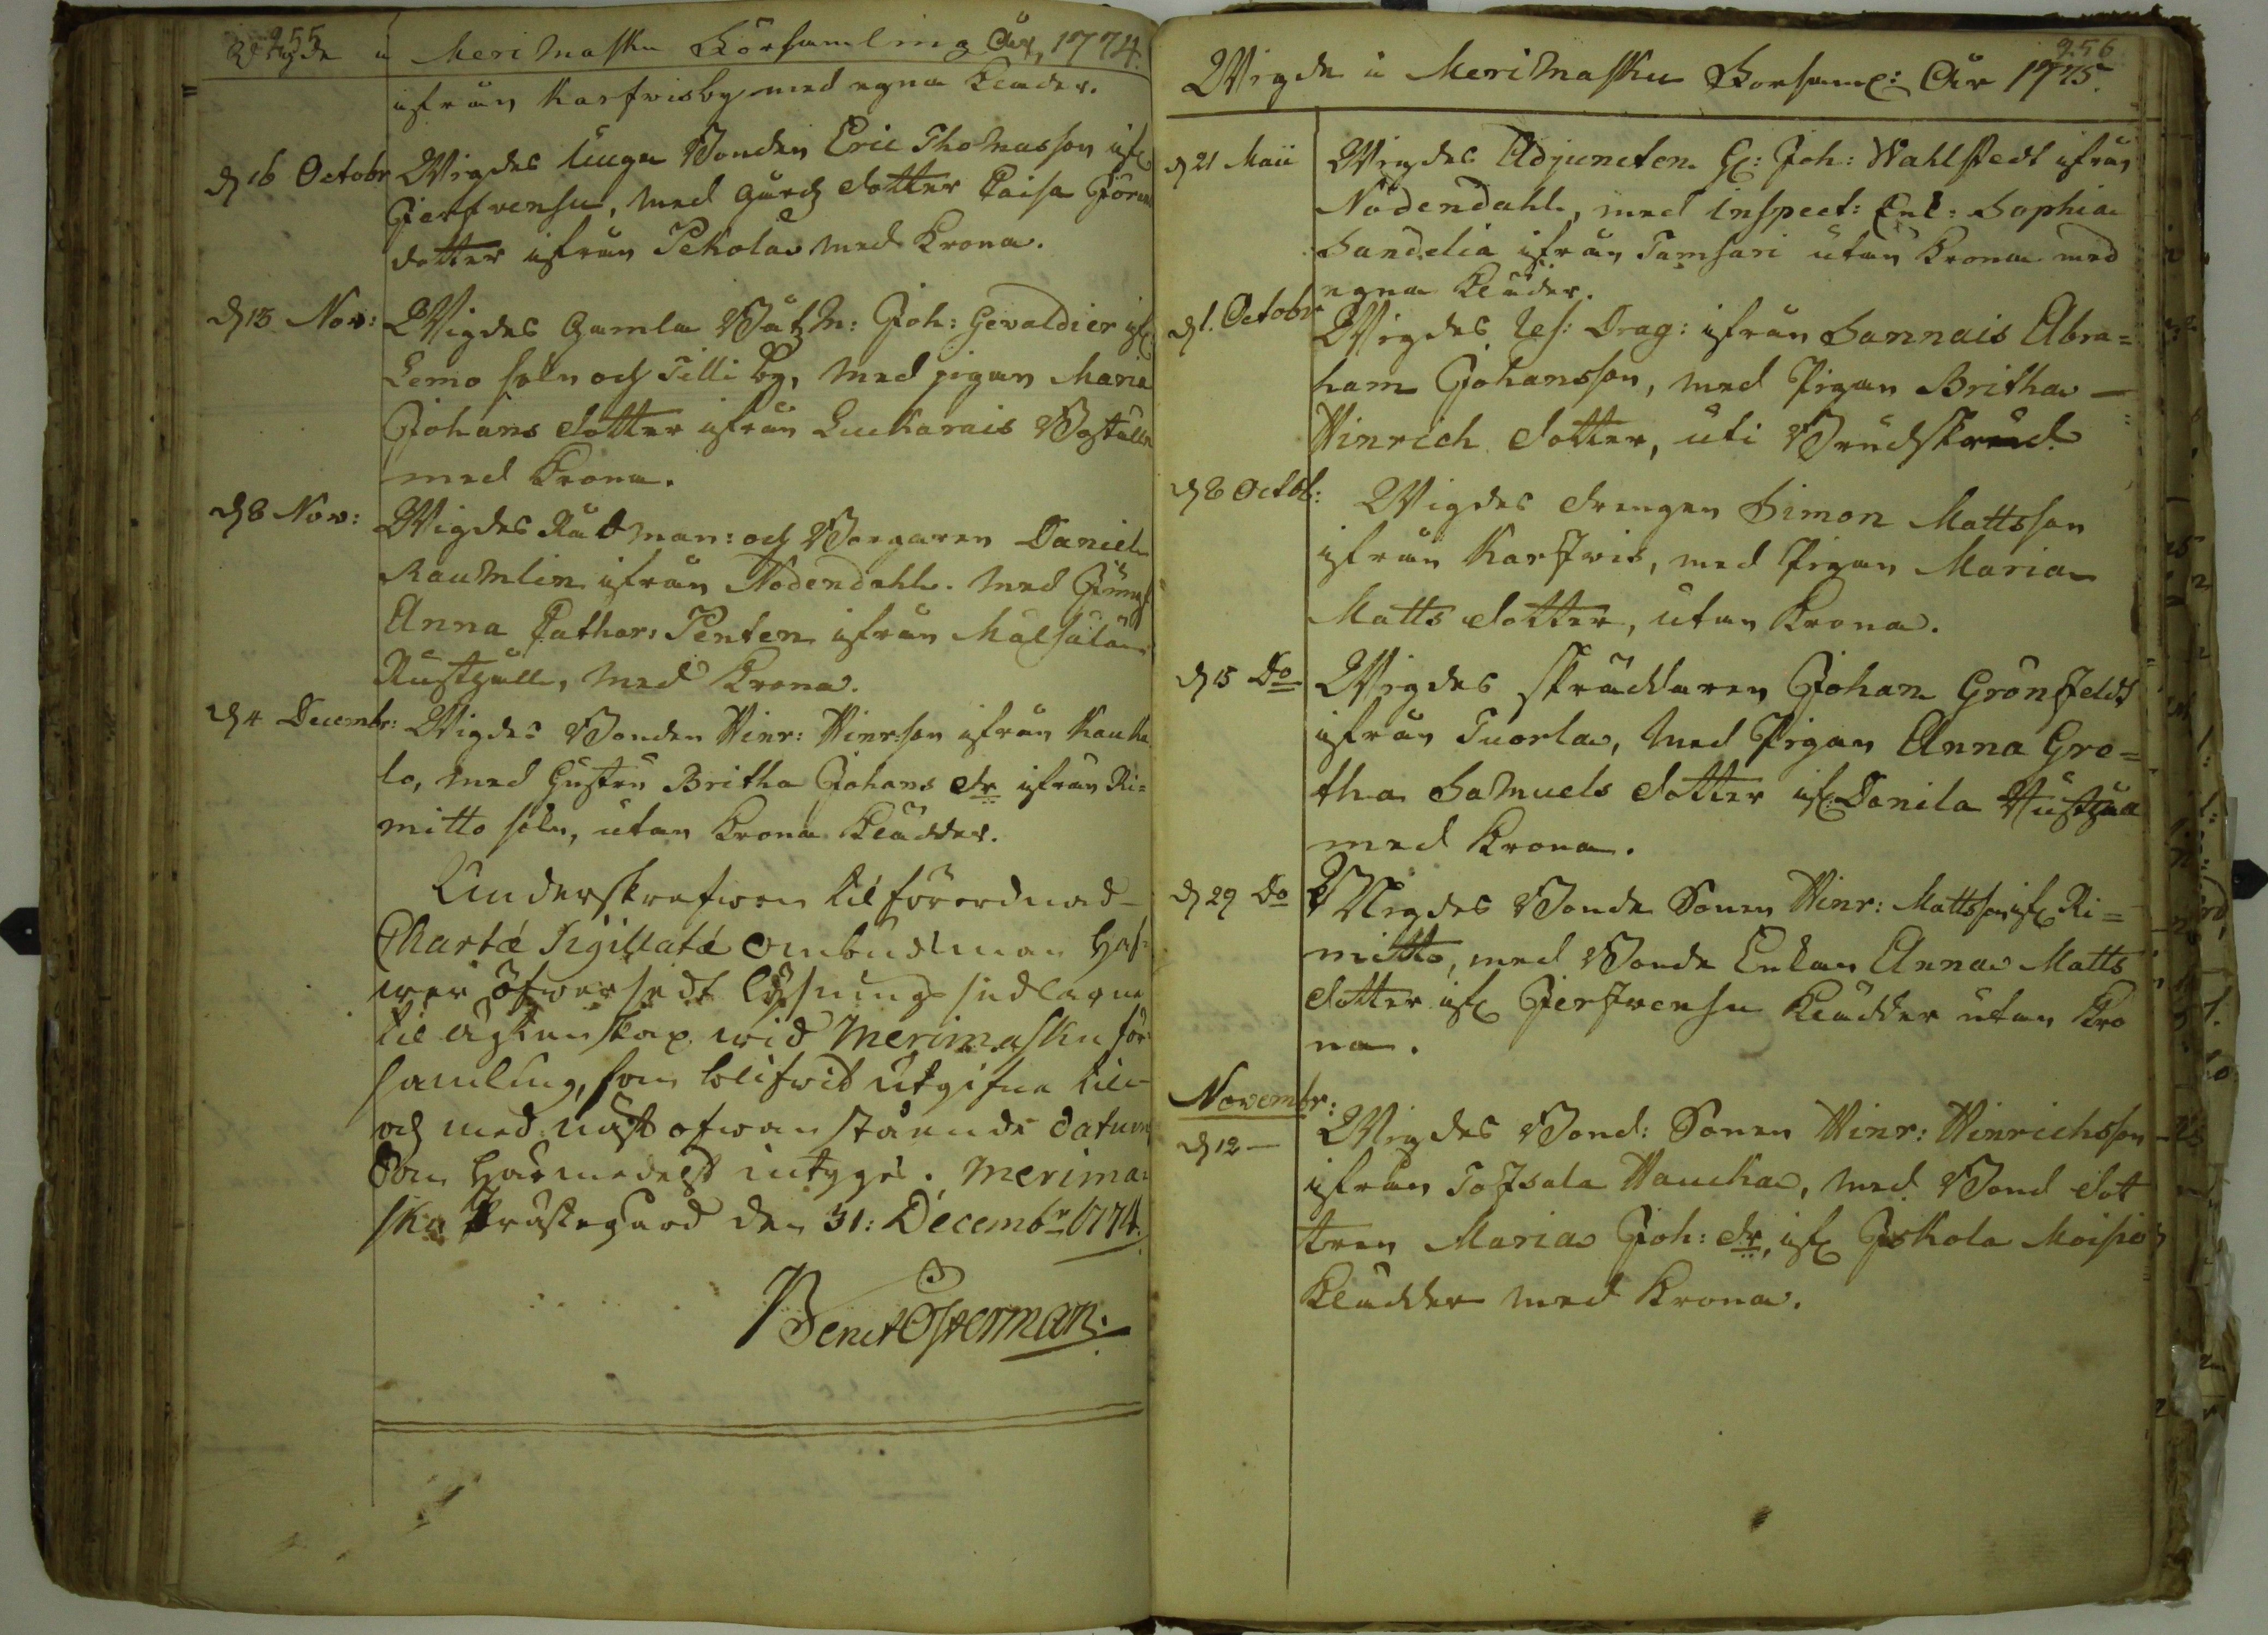 255
Wigde i Merimasku Församling År, 1774.
ifrån Karfwisby med egna Kläder.
d 16 Octobr Wigdes unga Bonden Eric Thomasson if:
Jerfwensu, med Gårds dotter Caisa Jörans
dotter ifrån Pekola med Krona.
d 13 Nov: Wigdes Gamla Båtzm: Joh: Gevaldier if:
Lemo soln och Tilli by, med pigan Maria
Johans dotter ifrån Luckarais Boställe
med Krona.
d 8 Nov: Wigdes Rådman: och Borgaren Daniel
Raumlin ifrån Nodendahl. med Jungf
Anna Cathar: Penten ifrån
Rusthåll, med Krona.
d 4 Decembr: Wigdes Bonden Hinr: Hinr:son ifrån Kauka
lo, med Hustru Britha Johans dr ifrån Ri=
mitto soln, utan Krona Klädder.
Underskrefwen til förordnad
Chartæ Sigillatæ Ombudsman haf=
wer öfwersedt lysnings sedlarne
til ägtenskap wid Merimasku för
samling, som blifwit utgifne til
och med näst ofwanstående datum
Som härmedelst intygés. Merima=
sku Prästegård den 31: Decembr 1774.
Benct Österman.
256
Wigde i Merimasku Forsaml: År 1775.
d 21 Maii Wigdes Adjuncten H: Joh: Wahlstedt ifrån
Nodendahl, med inspect: Enk: Sophia
Sandelia ifrån Tamsari utan Krona med
egna Kläder.
d 1. Octobr Wigdes Res: Drag: ifrån Sannais Abra=
ham Johansson, med Pigan Britha —
Hinrich dotter, uti Brudskrud
d 8 Octob: Wigdes drengen Simon Mattsson
ifrån Karfwis, med Pigan Maria
Matts dotter, utan Krona.
d 15 Do Wigdes skräddaren Johan Grönfeldt
ifrån Tuorla, med Pigan Anna Gre=
tha Samuels dotter if: Danila Rusthåll
med Krona.
d 29 Do Wigdes Bonde Sonen Hinr: Mattsson if: Ri=
mitto, med Bonde Enkan Anna Matts
dotter if: Jerfwensu Klädder utan Kro
na.
Novembr:
d 12 — Wigdes Bond: Sonen Hinr: Hinrichsson
ifrån Tofsala Hauka, med Bond dot
tren Maria Joh: dr, if: Iskola Moisio
Klädder med Krona.